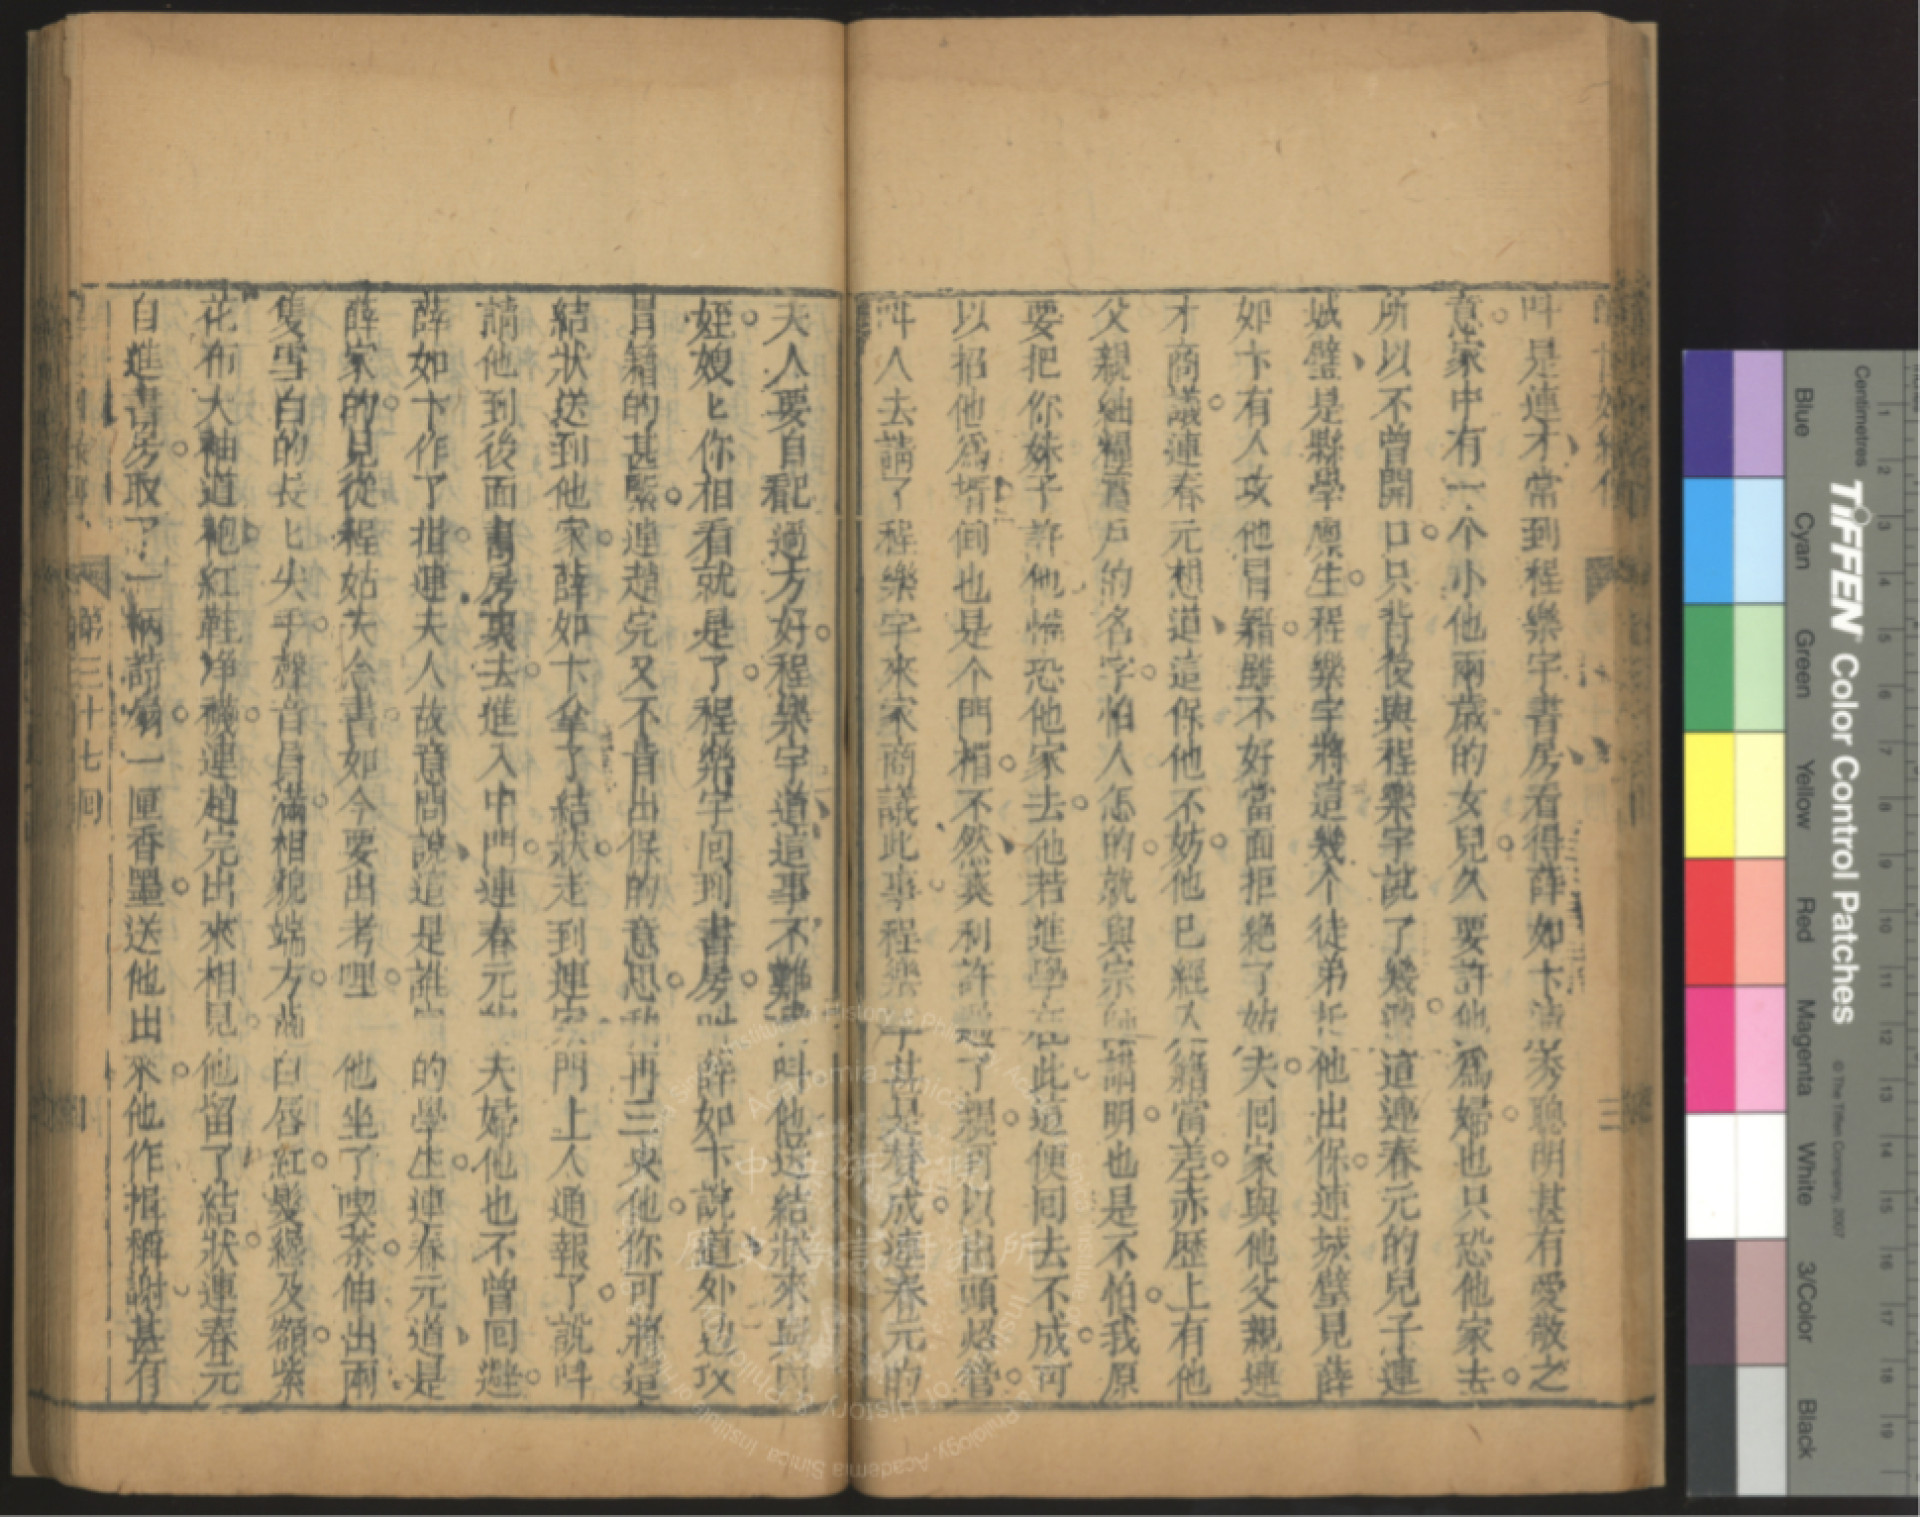 叫是連才常到程樂宇書房看得薛如卞清秀聰明甚有愛敬之
意家中有一个小他兩歲的女兒久要許他爲婦也只恐他家去
所以不曾開口只背後與程樂宇說了幾遭這連春元的兒子連
城璧是縣學廩生程樂宇將這幾个徒弟托他出保連城璧見薛
如卞有人攻他冒籍雖不好當面拒絕了姑夫囘家與他父親連
才商議連春元想道這保他不妨他已經入籍當差赤歷上有他
父親納糧舊戶的名字怕人怎的就與宗師講明也是不怕我原
要把你妹子許他惟恐他家去他若進學在此這便囘去不成可
以招他爲壻倒也是个門楣不然爽利許過了親可以出頭炤管
叫人去請了程樂宇來家商議此事程樂宇甚是贊成連春元的
夫人要自己看過方好程樂宇道這事不難我叫他送結狀來與
姪嫂匕你相看就是了程樂宇囘到書房叫薛如卞說道外边攻
冒籍的甚緊連趙完又不肯出保的意思我再三央他你可將這
結狀送到他家薛如卞拿了結狀走到連家門上人通報了說叫
請他到後面書房裏去進入中門連春元夫婦他也不曾囘避
薛如卞作了揖連夫人故意問說這是誰家的學生連春元道是
薛家的見從程姑夫念書如今要出考哩他坐了喫茶伸出兩
隻雪白的長匕尖手聲音圓滿相貌端方齒白唇紅髮纔及額紫
花布大袖道袍紅鞋净襪連趙完出來相見他留了結狀連春元
自進書房取了一柄詩扇一匣香墨送他出來他作揖稱謝甚有
第三十七囘
三